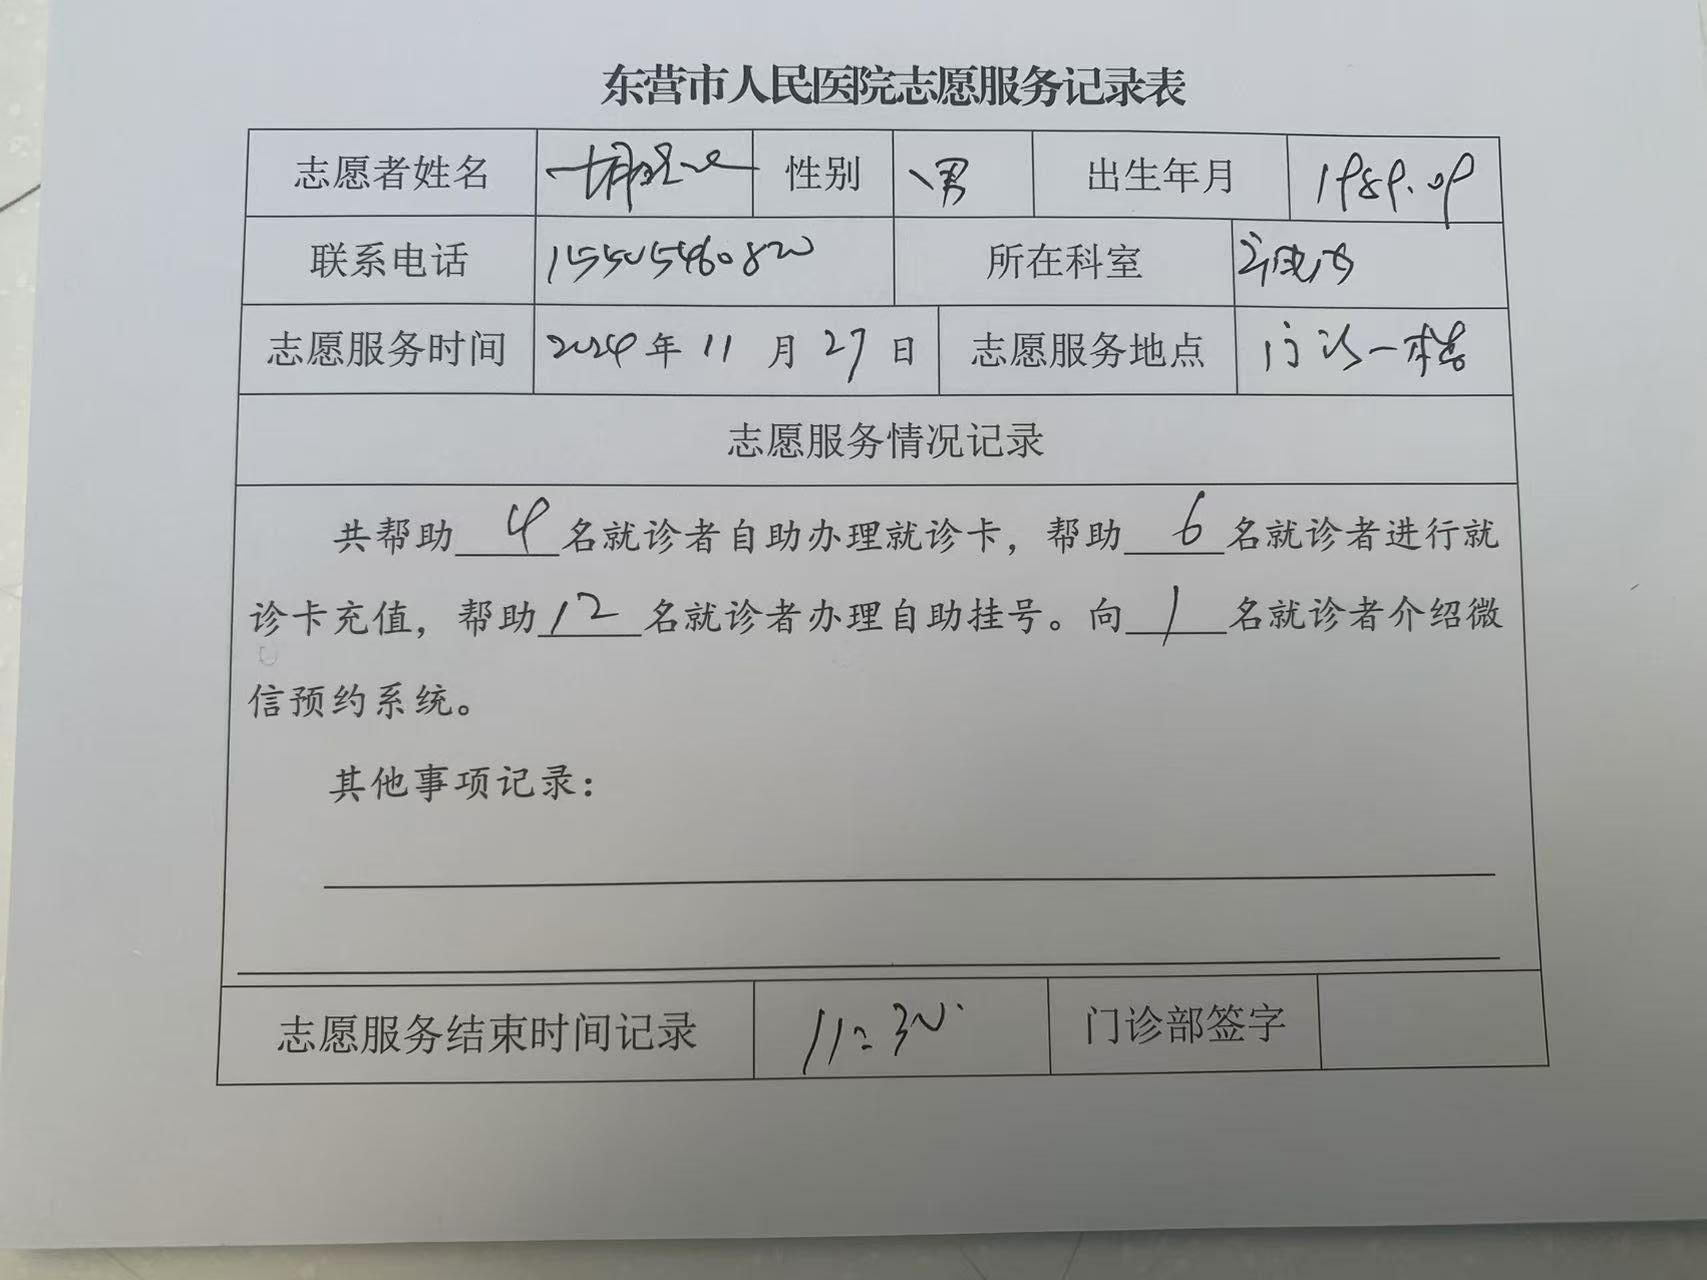 东营市人民医院志愿服务记录表
志愿者姓名 性别 男 出生年月 1989.09
联系电话 所在科室
志愿服务时间 2024年 11 月 27 日 志愿服务地点 门诊一楼
志愿服务情况记录
共帮助 4 名就诊者自助办理就诊卡，帮助 6 名就诊者进行就
诊卡充值，帮助 12 名就诊者办理自助挂号。向 1 名就诊者介绍微
信预约系统。
其他事项记录：
志愿服务结束时间记录 11:30 门诊部签字